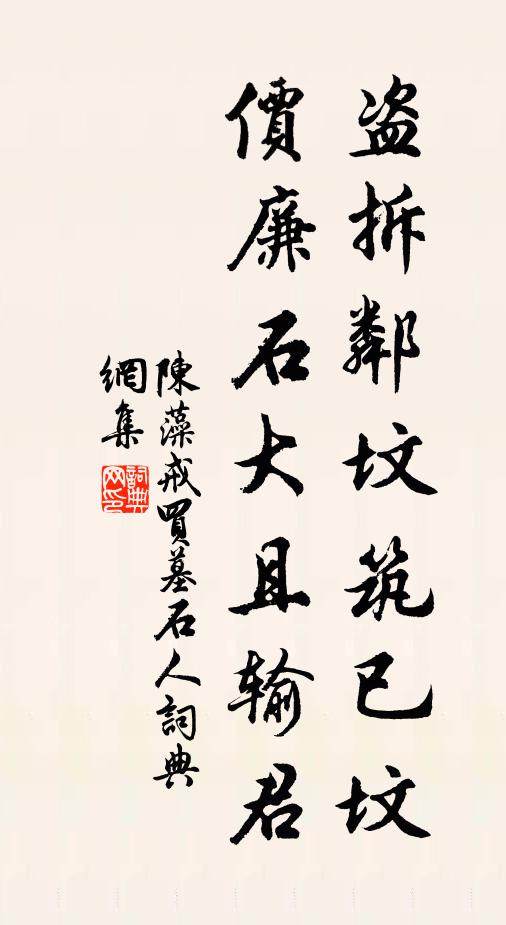 盗拆鄰坟筑已坟
價廉石大且输君
陳藻戒買墓石人詞典
網集
詞典
网印